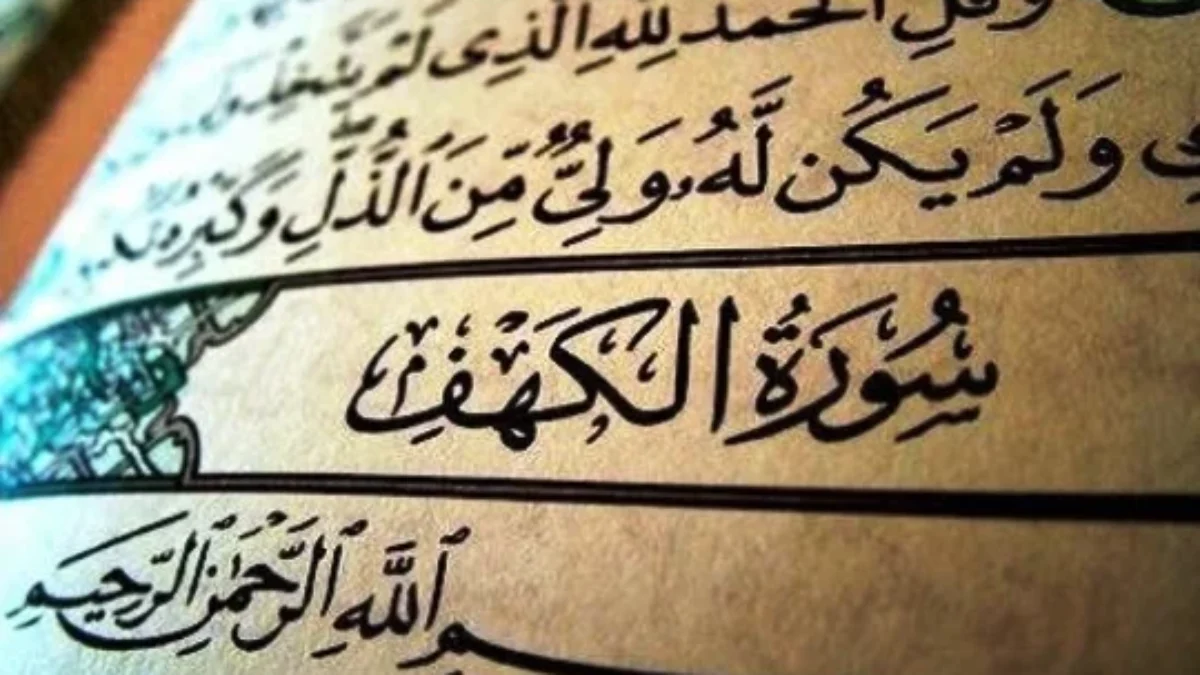 وَقُلِ الْحَمْدُ لِلَّهِ الَّذِى لَمْ يَتَّخِذْ
وَلَمْ يَكُن لَّهُۥ وَلِىٌّ مِّنَ ٱلذُّلِّ وَكَبِّرْهُ
سُورَةُ الكَهْفِ
ٱللَّهِ ٱلرَّحْمَٰنِ ٱلرَّحِيمِ